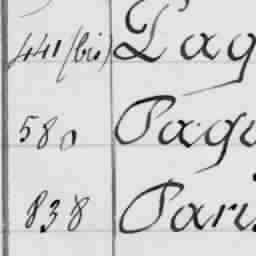 441 (bis) Pag
580 Pagu
838 Paris